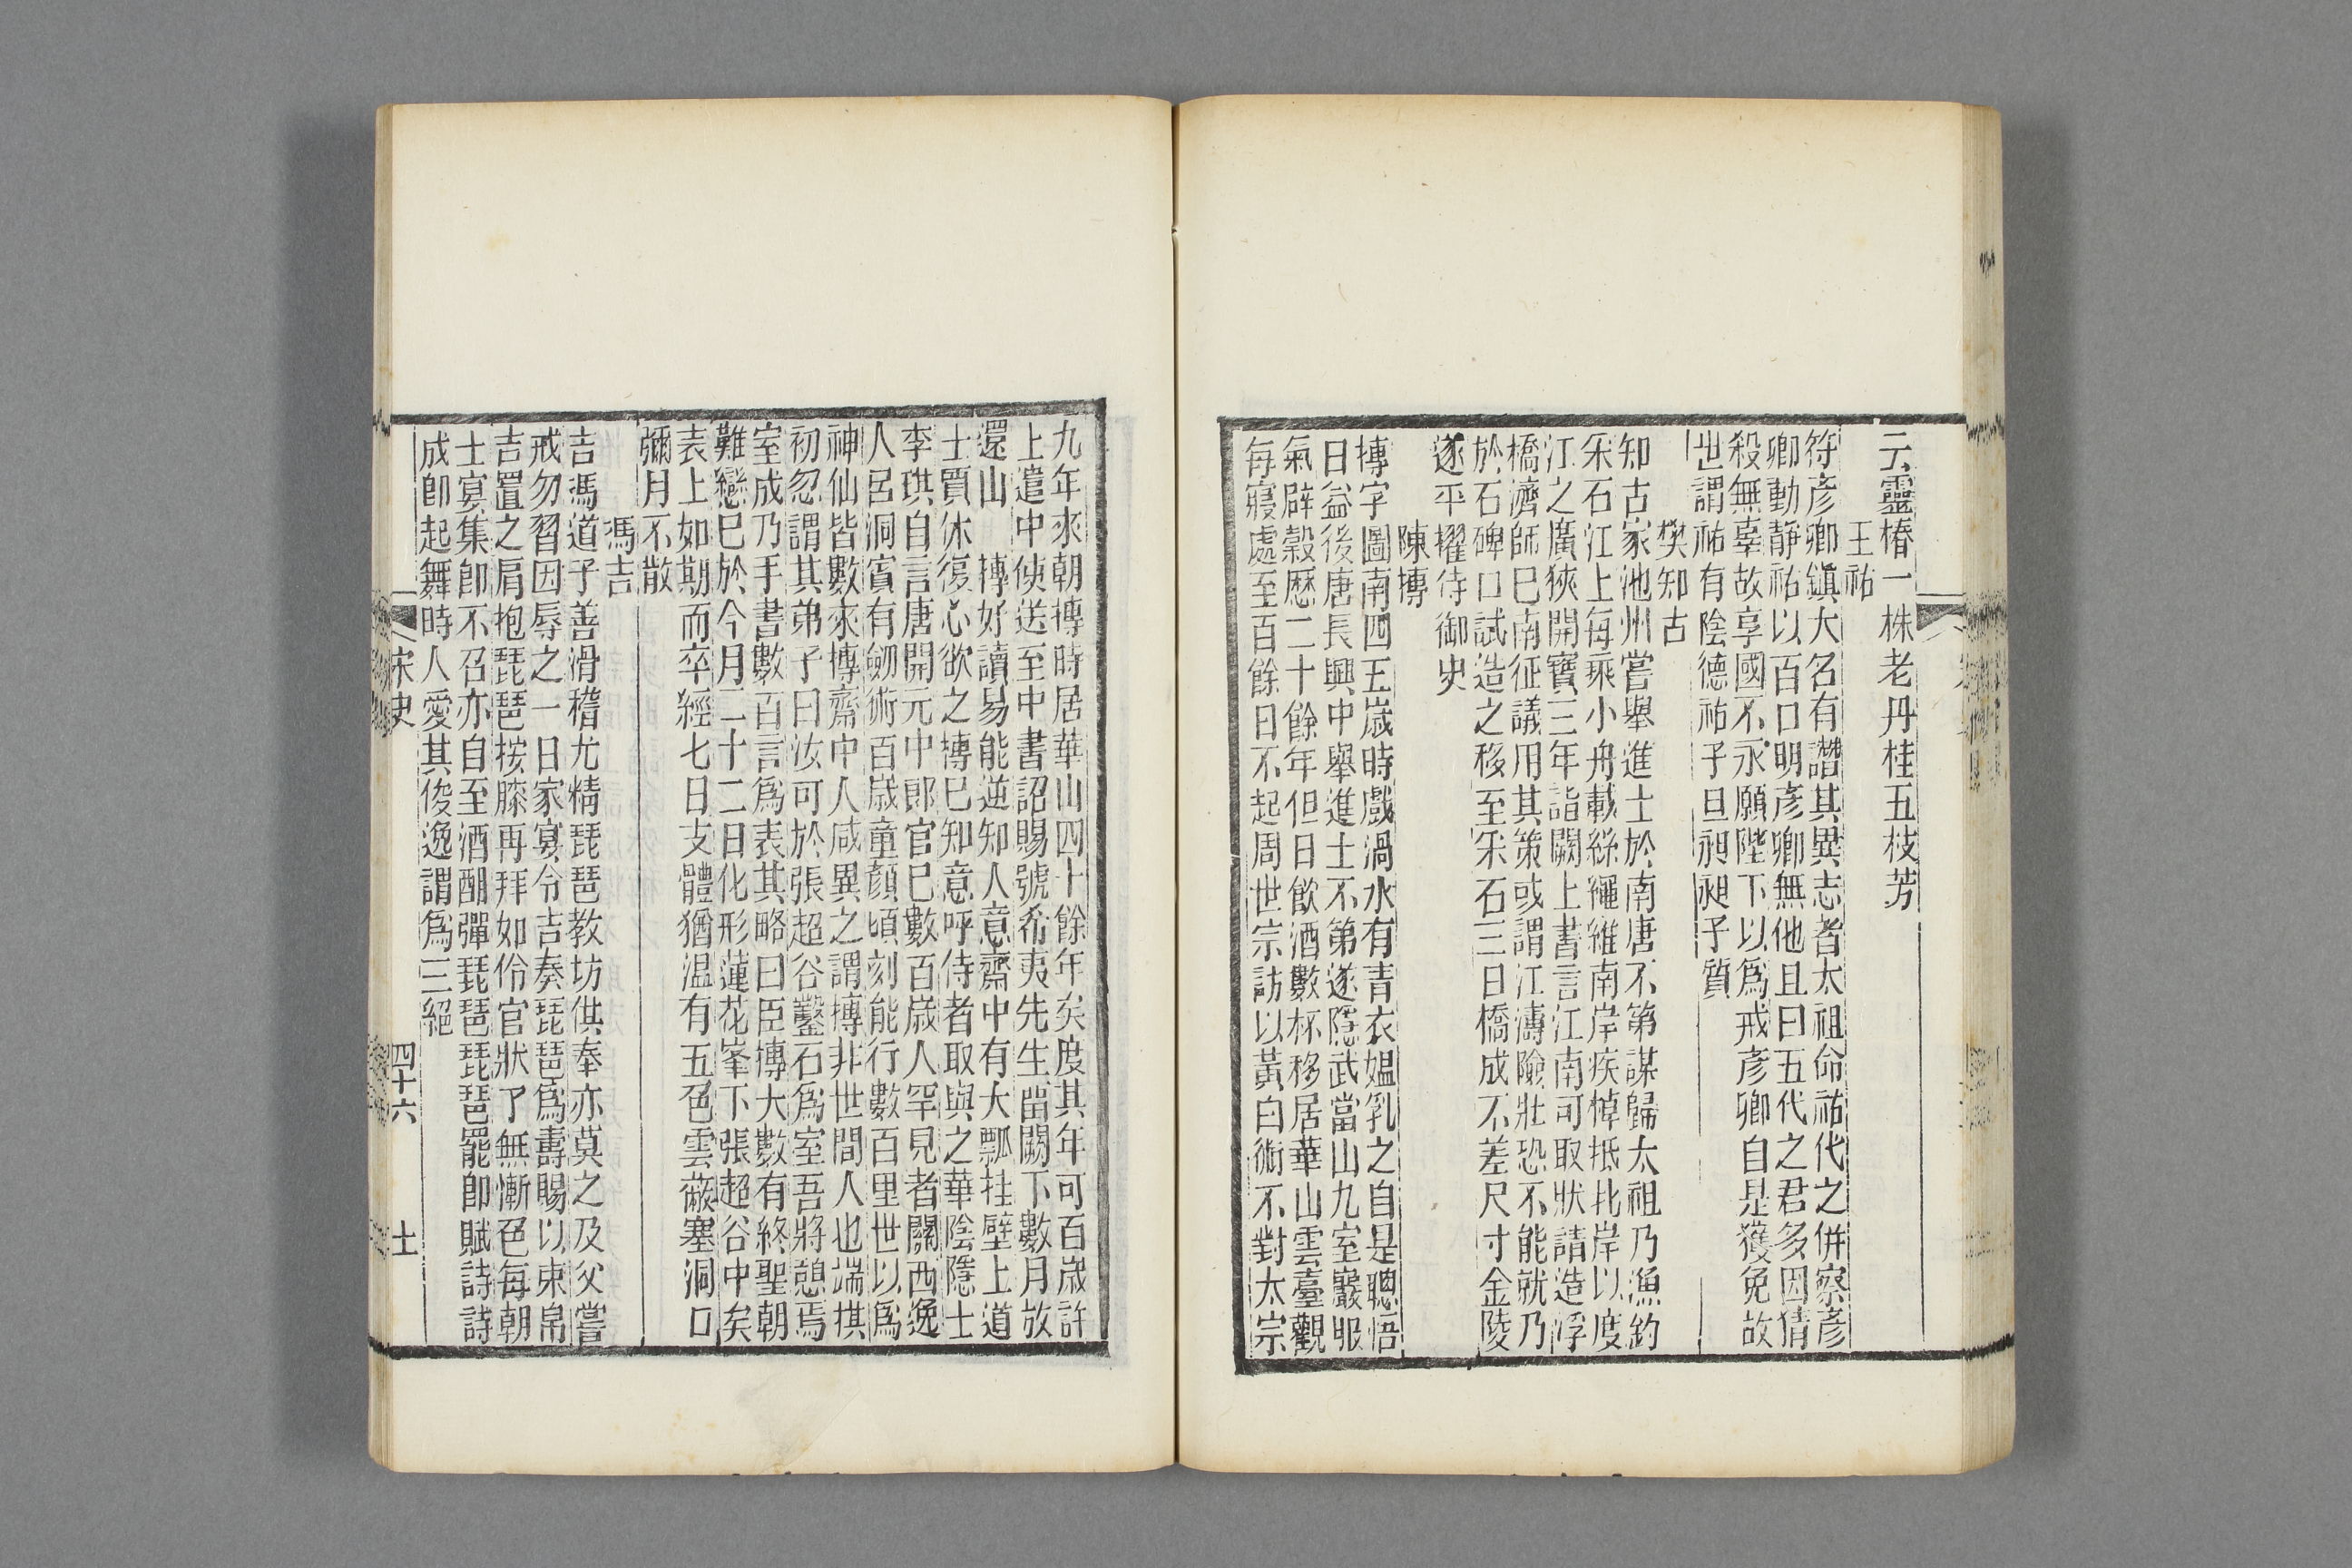 云靈椿一株老丹桂五枝芳
王祐
符彥卿鎮大名有譖其異志者太祖命祐代之併察彥
卿動靜祐以百口明彥卿無他且曰五代之君多因猜
殺無辜故享國不永願陛下以爲戒彥卿自是獲免故
世謂祐有陰德祐子旦旭昶子質
樊知古
知古家池州嘗舉進士於南唐不第謀歸太祖乃漁釣
采石江上每乘小舟載絲繩維南岸疾棹抵北岸以度
江之廣狹開寶三年詣闕上書言江南可取狀請造浮
橋濟師已南征議用其策或謂江濤險壯恐不能就乃
於石碑口試造之移至采石三日橋成不差尺寸金陵
遂平擢侍御史
陳摶
摶字圖南四五歲時戲渦水有青衣媼乳之自是聰悟
日益後唐長興中舉進士不第遂隱武當山九室巖服
氣辟穀歷二十餘年但日飲酒數杯移居華山雲臺觀
每寢處至百餘日不起周世宗訪以黃白術不對太宗
九年來朝摶時居華山四十餘年矣度其年可百歲許
上遣中使送至中書詔賜號希夷先生留闕下數月放
還山　摶好讀易能逆知人意齋中有大瓢挂壁上道
士賈休復心欲之摶已知意呼侍者取與之華陰隱士
李琪自言唐開元中郎官已數百歲人罕見者關西逸
人呂洞賓有劒術百歲童顏頃刻能行數百里世以爲
神仙皆數來摶齋中人咸異之謂摶非世間人也端拱
初忽謂其弟子曰汝可於張超谷鑿石爲室吾將憩焉
室成乃手書數百言爲表其略曰臣摶大數有終聖朝
難戀已於今月二十二日化形蓮花峯下張超谷中矣
表上如期而卒經七日支體猶温有五色雲蔽塞洞口
彌月不散
馮吉
吉馮道子善滑稽尤精琵琶教坊供奉亦莫之及父嘗
戒勿習因辱之一日家宴令吉奏琵琶爲壽賜以束帛
吉置之肩抱琵琶按膝再拜如伶官狀了無慚色每朝
士宴集卽不召亦自至酒酣彈琵琶琵琶罷卽賦詩詩
成卽起舞時人愛其俊逸謂爲三絕
宋史　四十六　士